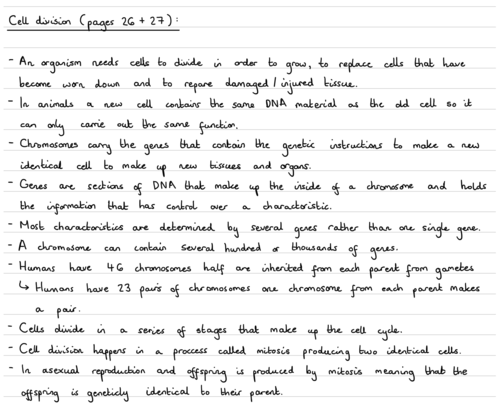 Cell division (pages 26 + 27):
- An organism needs cells to divide in order to grow, to replace cells that have
become worn down and to repare damaged / injured tissue.
- In animals a new cell contains the same DNA material as the old cell so it
can only carrie out the same function.
- Chromosomes carry the genes that contain the genetic instructions to make a new
identical cell to make up new tissues and organs.
- Genes are sections of DNA that make up the inside of a chromosome and holds
the information that has control over a characteristic.
- Most characteristics are determined by several genes rather than one single gene.
- A chromosome can contain several hundred or thousands of genes.
- Humans have 46 chromosomes half are inherited from each parent from gametes
↳ Humans have 23 pairs of chromosomes one chromosome from each parent makes
a pair.
- Cells divide in a series of stages that make up the cell cycle.
- Cell division happens in a proccess called mitosis producing two identical cells.
- In asexual reproduction and offspring is produced by mitosis meaning that the
offspring is geneticly identical to their parent.